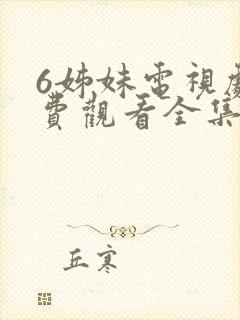 6姊妹電視劇
費觀看全集
丘寒